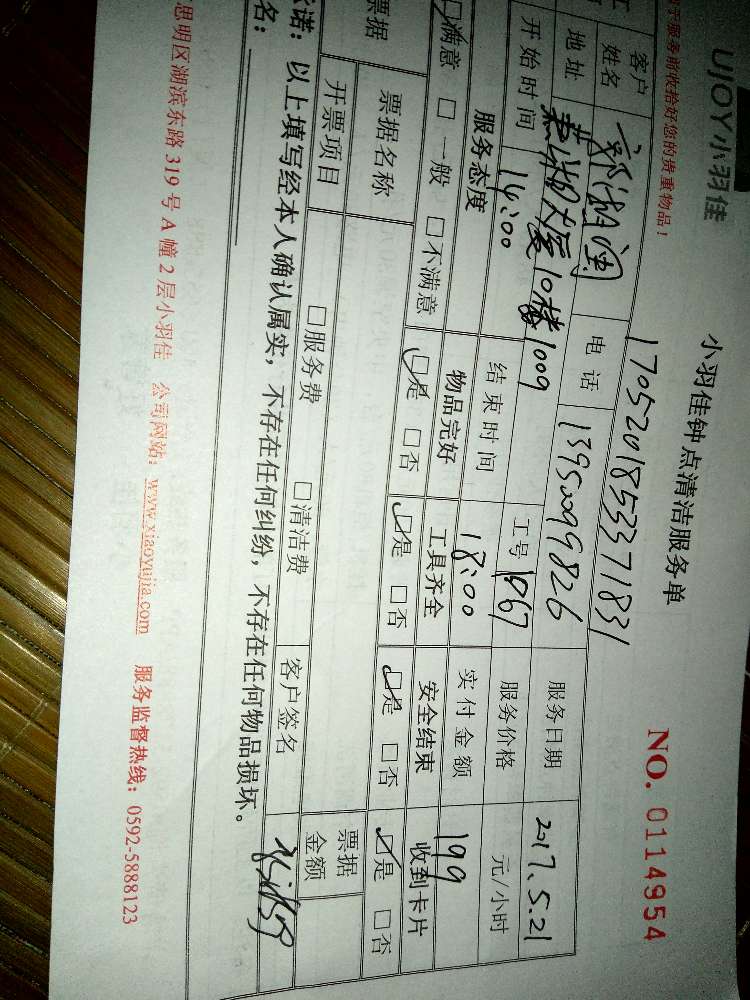 UJOY小羽佳
小羽佳钟点清洁服务单
NO. 0114954
服务前收拾好您的贵重物品！
1705201853371831
客户姓名 电话 13950099826 服务日期 2017.5.21
地址 大厦10楼1009 工号 1067 服务价格 元/小时
开始时间 14:00 结束时间 18:00 实付金额 199
服务态度 物品完好 工具齐全 安全结束 收到卡片
☑满意 □一般 □不满意 ☑是 □否 ☑是 □否 ☑是 □否 ☑是 □否
票据 票据名称 票据金额
开票项目 □服务费 □清洁费 客户签名
诺：以上填写经本人确认属实，不存在任何纠纷，不存在任何物品损坏。
名：
思明区湖滨东路319号A幢2层小羽佳 公司网站：www.xiaoyujia.com 服务监督热线：0592-5888123